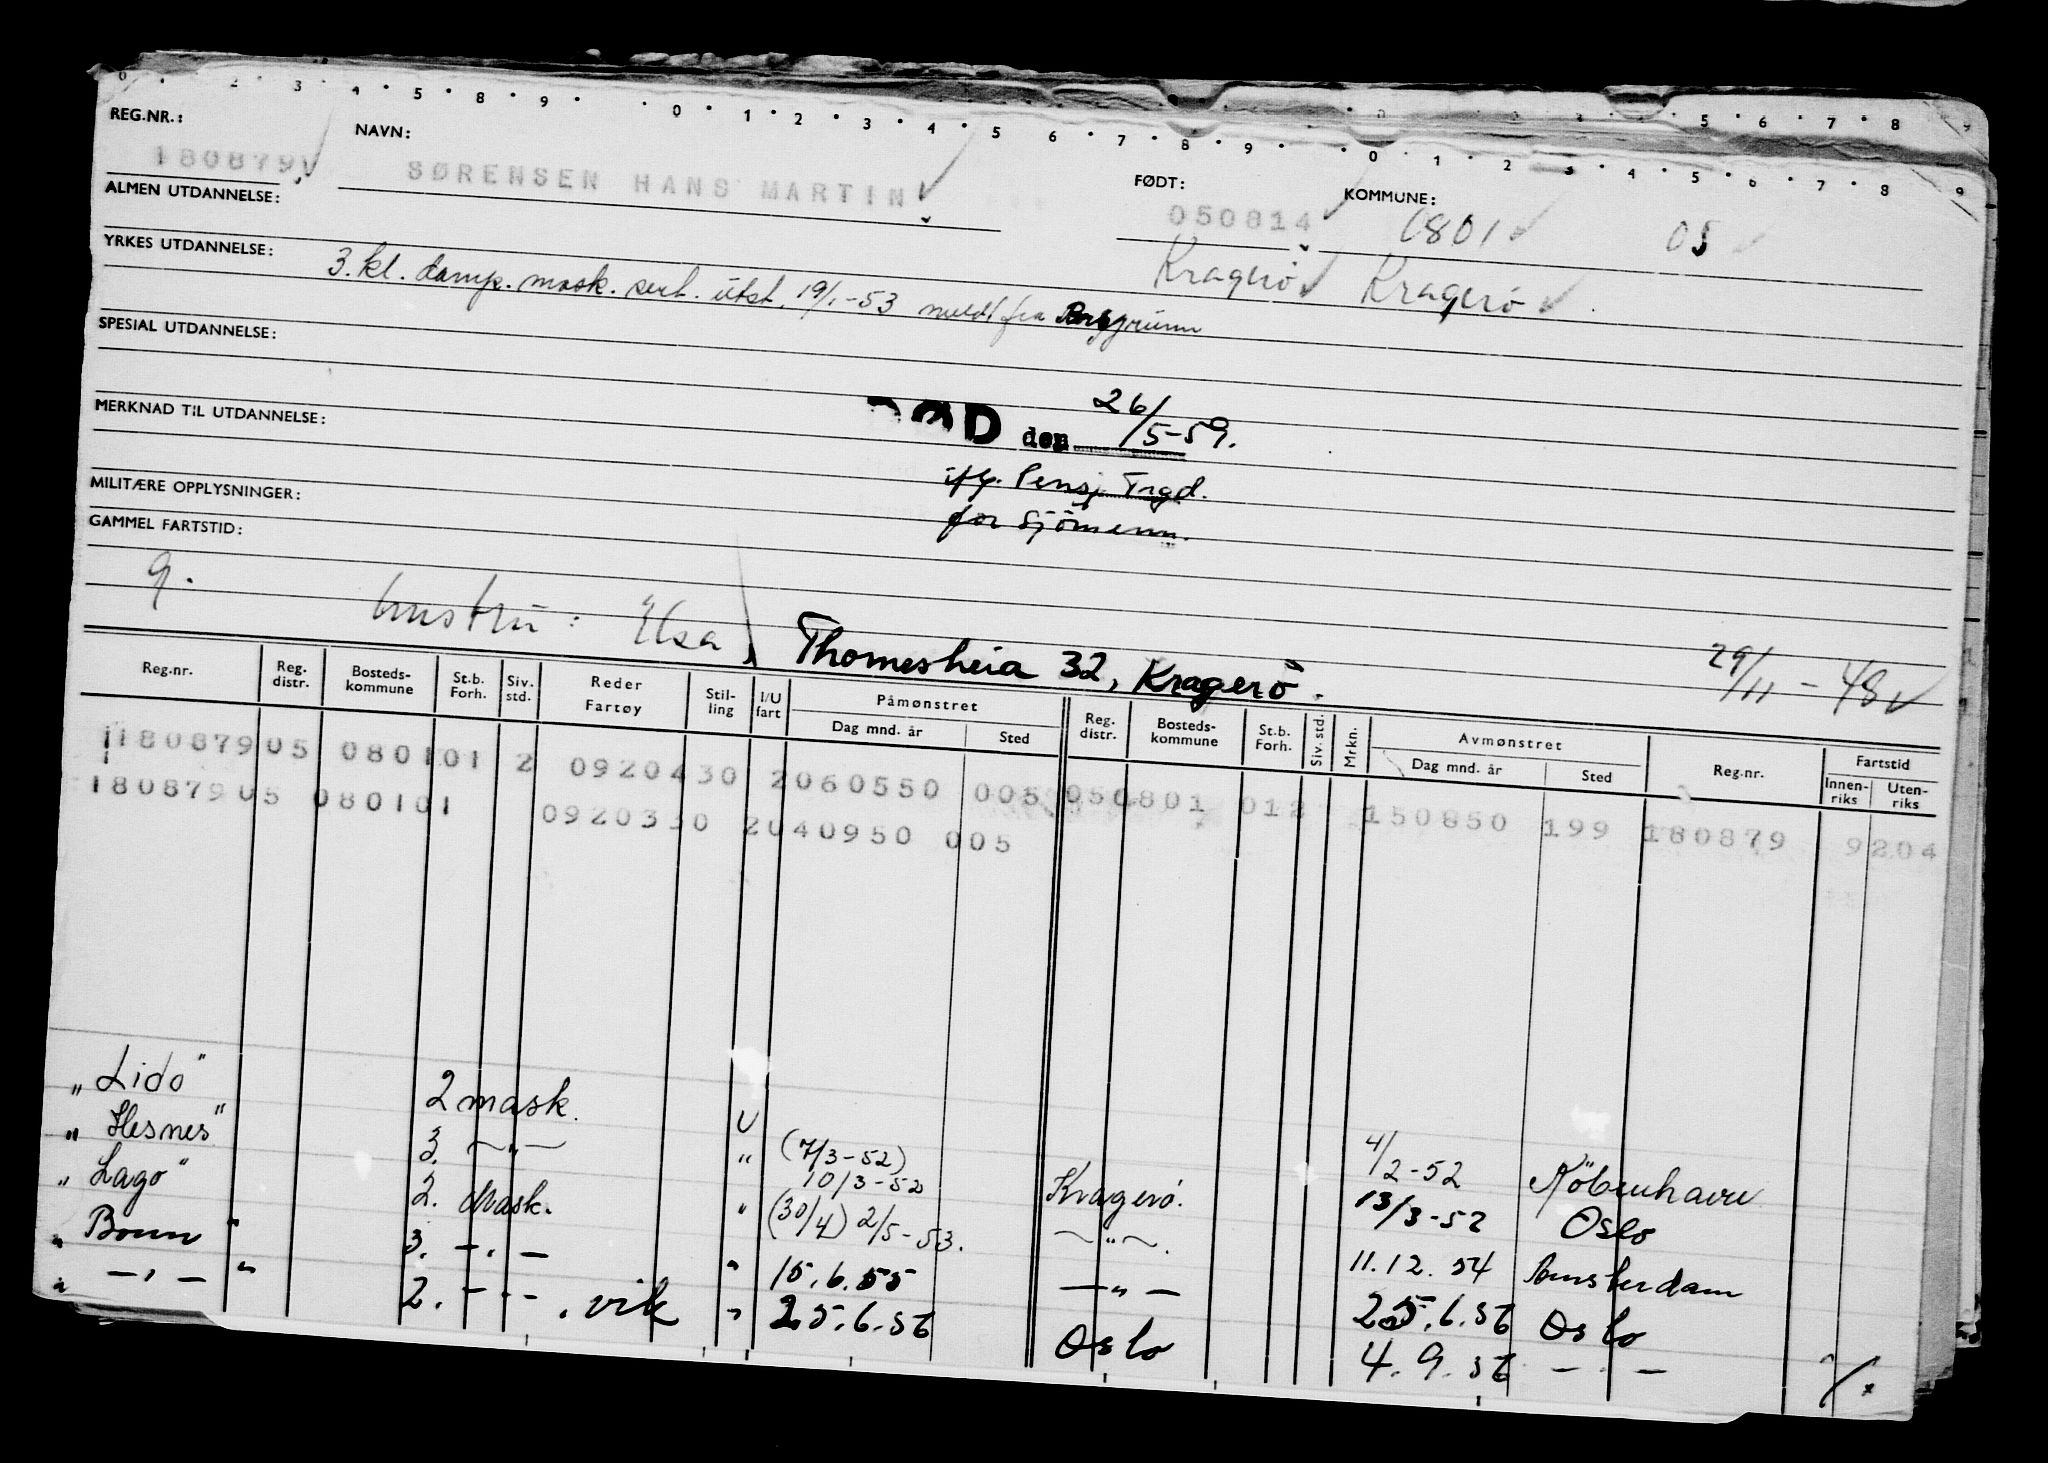 0 2 3 4 5 8 9 0 1 2 3 4 5 6 7 8 9 0 1 2 3 4 5 6 7 8 9
5 6 7 8 9
REG.NR.: NAVN: FØDT: KOMMUNE:
180879 SØRENSEN HANS MARTIN 050814 0801 05
ALMEN UTDANNELSE: Kragerö Kragerö
YRKES UTDANNELSE: 3. kl. damp. mask. sert. utst. 19/1-53 meldt fra Porsgrunn
SPESIAL UTDANNELSE:
MERKNAD TIL UTDANNELSE: DØD den 26/5-59.
ifg. Pensj Trgd.
MILITÆRE OPPLYSNINGER: for Sjömenn.
GAMMEL FARTSTID:
g. hustru: Elsa, Thomesheia 32, Kragerö. 29/11-48
Reg.nr. Reg. distr. Bosteds-kommune St.b. Forh. Siv. std. Reder Fartøy Stil-ling I/U fart Påmønstret Dag mnd. år Sted Reg. distr. Bosteds-kommune St.b. Forh. Siv. std. Mrkn. Avmønstret Dag mnd. år Sted Reg.nr. Fartstid Innen-riks Uten-riks
180879 05 0801 01 2 0920430 2060550 005 050801 012 150850 199 180879 9204
180879 05 0801 01 0920330 2040950 005
"Lido" 2 mask. U 4/2-52 Köbenhavn
"Hesnes" 3. -"- " (7/3-52) 10/3-52 Kragerö. 13/3-52 Oslo
"Lago" 2. Mask. " (30/4) 2/5-53. -"-. 11.12.54 Amsterdam
"Bonn" 3. -"- " 15.6.55 -"- 25.6.56 Oslo
" -"- " 2. -"-.vik " 25.6.56 Oslo 4.9.56 -"-